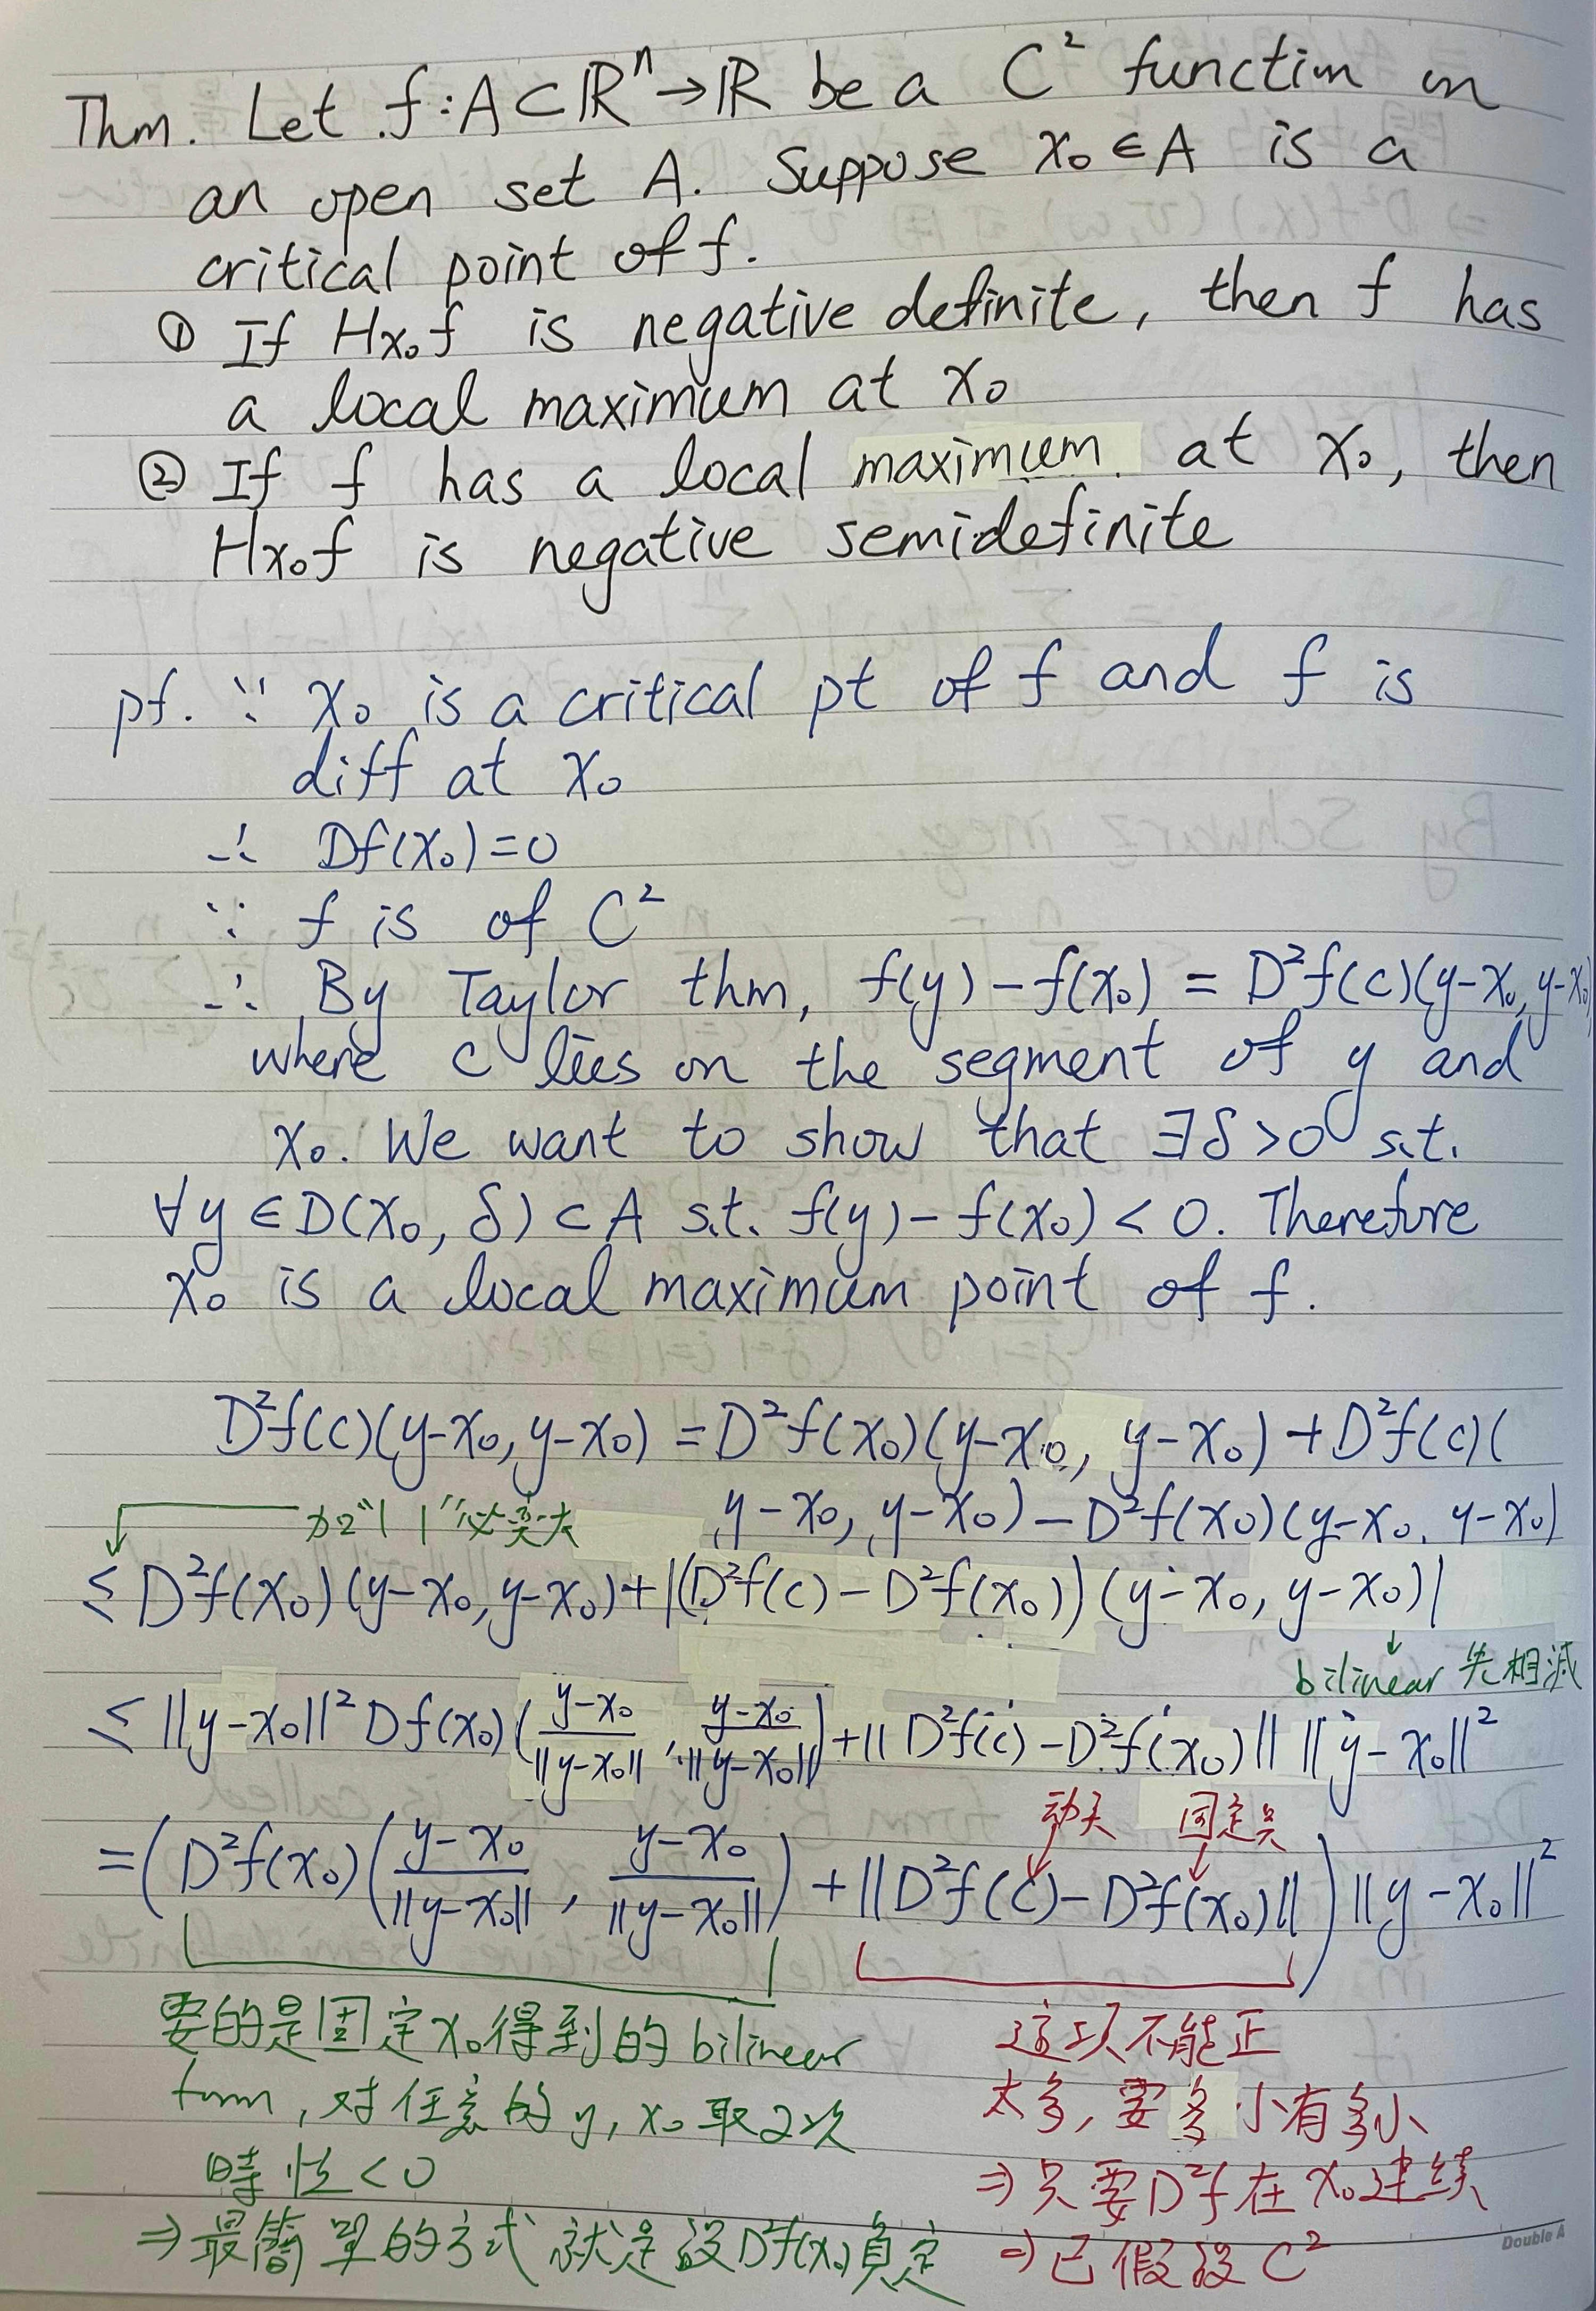 Thm. Let f: A⊂ℝⁿ→ℝ be a C² function on
an open set A. Suppose x₀∈A is a
critical point of f.
① If Hx₀f is negative definite, then f has
a local maximum at x₀
② If f has a local maximum at x₀, then
Hx₀f is negative semidefinite
pf. ∵ x₀ is a critical pt of f and f is
diff at x₀
∴ Df(x₀)=0
∵ f is of C²
∴ By Taylor thm, f(y)-f(x₀) = D²f(c)(y-x₀, y-x₀)
where c lies on the segment of y and
x₀. We want to show that ∃δ>0 s.t.
∀y∈D(x₀, δ)⊂A s.t. f(y)-f(x₀)<0. Therefore
x₀ is a local maximum point of f.
D²f(c)(y-x₀, y-x₀) = D²f(x₀)(y-x₀, y-x₀) + D²f(c)(
y-x₀, y-x₀) - D²f(x₀)(y-x₀, y-x₀)
加"| |"必变大
≤ D²f(x₀)(y-x₀, y-x₀) + |(D²f(c) - D²f(x₀))(y-x₀, y-x₀)|
bilinear 先相减
≤ ||y-x₀||² Df(x₀)((y-x₀)/||y-x₀||, (y-x₀)/||y-x₀||) + ||D²f(c) - D²f(x₀)|| ||y-x₀||²
动点 固定点
= (D²f(x₀)((y-x₀)/||y-x₀||, (y-x₀)/||y-x₀||) + ||D²f(c) - D²f(x₀)||) ||y-x₀||²
要的是固定x₀得到的 bilinear
form, 对任意的 y, x₀ 取2次
時 恒<0
⇒ 最簡單的方式就是設D²f(x₀)負定
这项不能正
太多, 要多小有多小
⇒ 只要D²f在x₀连续
⇒ 已假設 C²
Double A